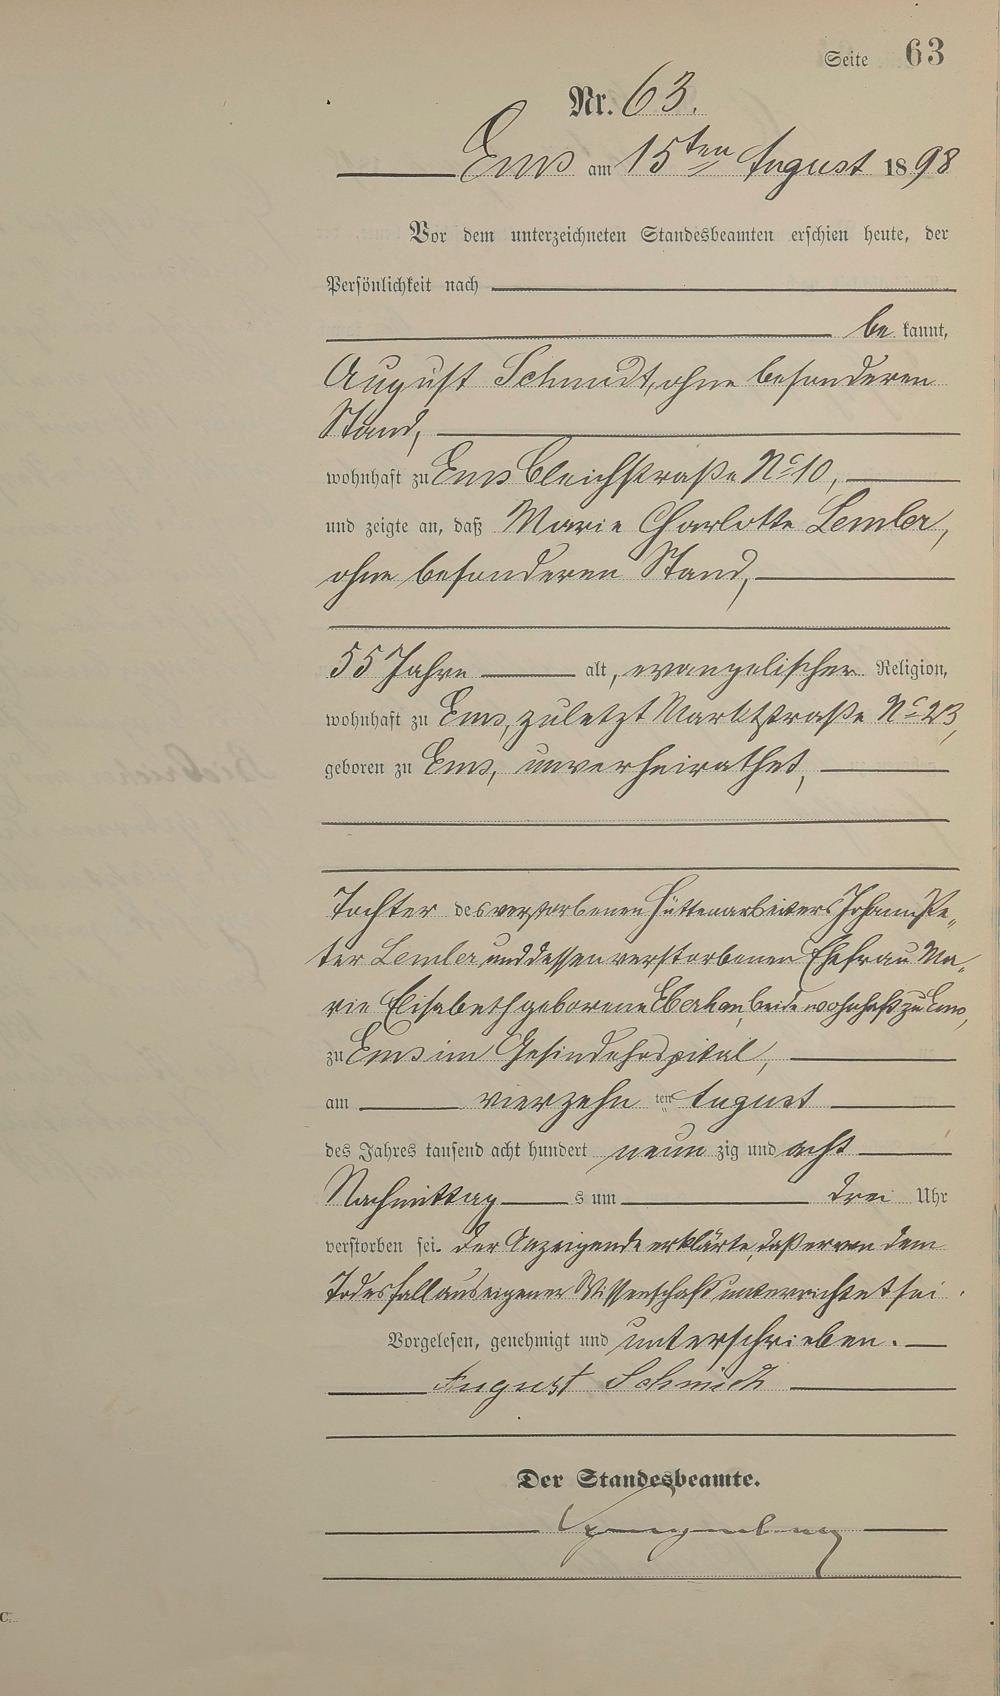 Seite 63
Nr. 63.
Ems am 15ten August 1898
Vor dem unterzeichneten Standesbeamten erschien heute, der
Persönlichkeit nach
be kannt,
August Schmidt, ohne besonderen
Stand,
wohnhaft zu Ems Bleichstraße No 10,
und zeigte an, daß Marie Charlotte Lemler,
ohne besonderen Stand,
55 Jahre alt, evangelischer Religion,
wohnhaft zu Ems, zuletzt Marktstraße No 23,
geboren zu Ems, unverheirathet,
Tochter des verstorbenen Hüttenarbeiters Johann Pe„
ter Lemler und dessen verstorbenen Ehefrau Ma„
rie Elisabeth geborene beide wohnhaft zu Ems,
zu Ems im
am vierzehn ten August
des Jahres tausend acht hundert neun zig und acht
Nachmittag s um drei Uhr
verstorben sei. Der Anzeigende erklärte, daß er von dem
Todesfall aus eigener Wissenschaft unterrichtet sei.
Vorgelesen, genehmigt und unterschrieben.
August Schmidt
Der Standesbeamte.
C.